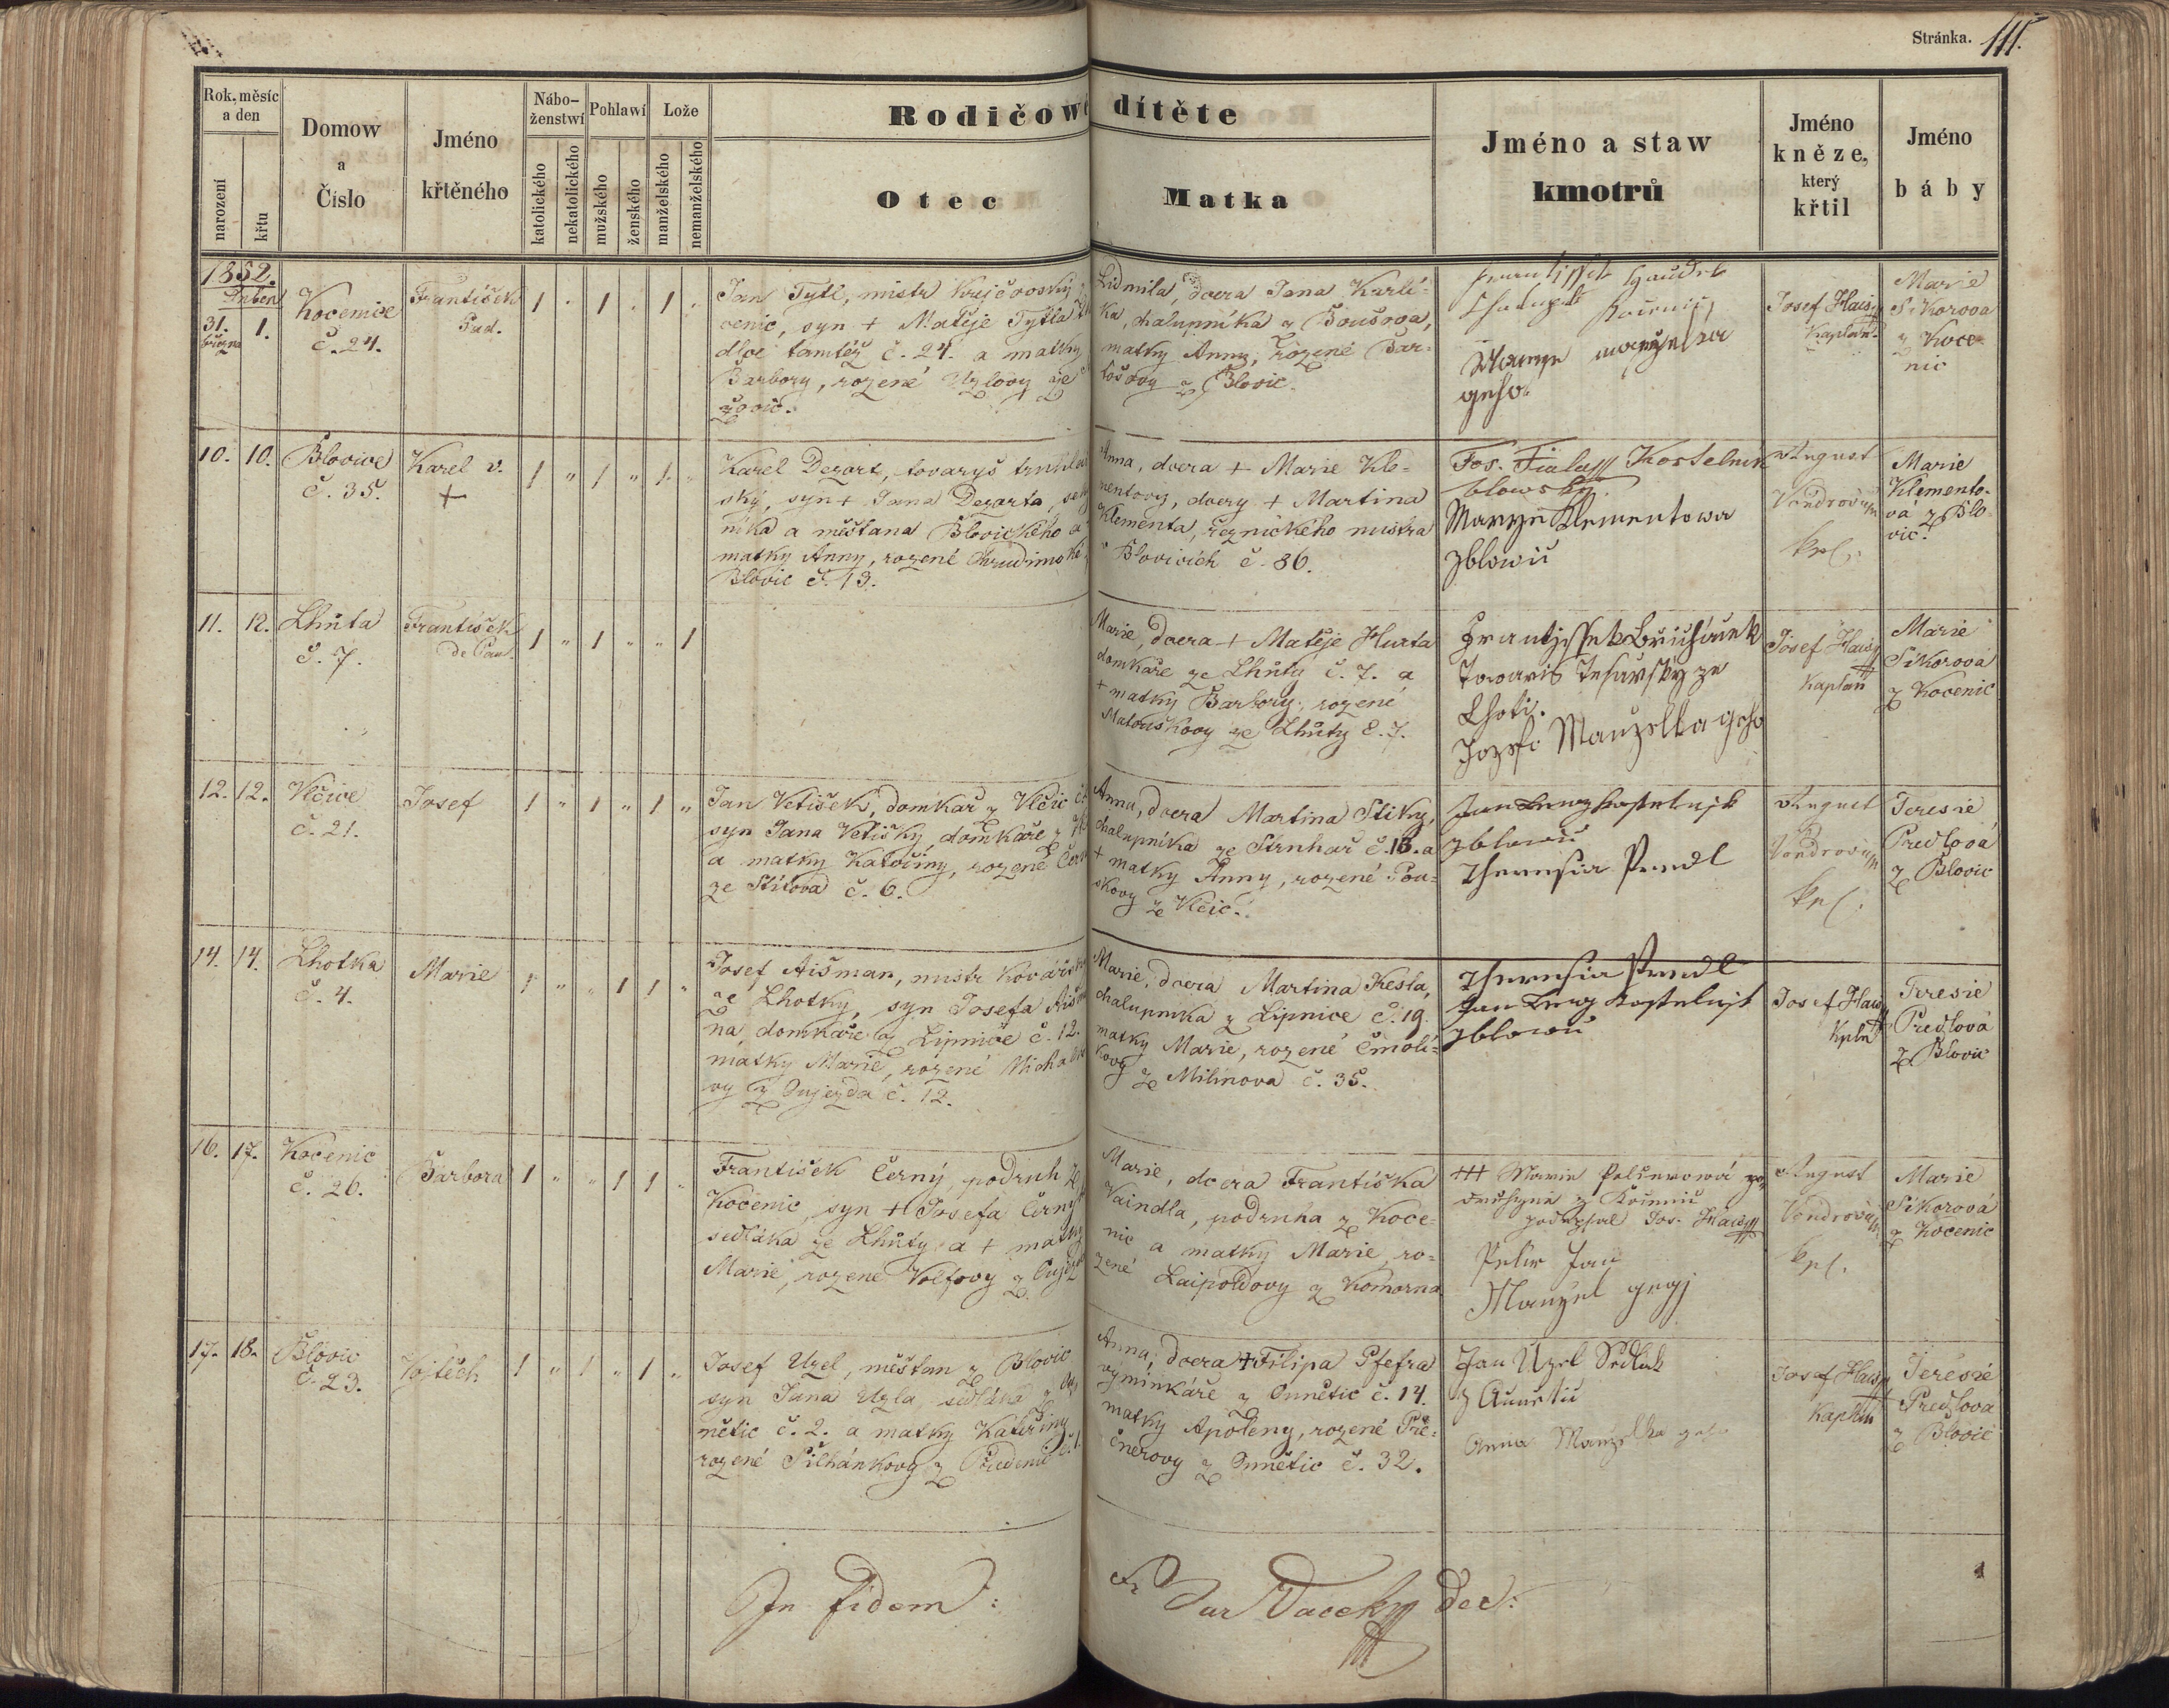 Stránka. 111.
Rok, měsíc a den
narození
křtu
Domow a Číslo
Jméno křtěného
Nábo-ženstwí
katolického
nekatolického
Pohlawí
mužského
ženského
Lože
manželského
nemanželského
Rodičowé dítěte
Otec
Matka
Jméno a staw kmotrů
Jméno kněze, který křtil
Jméno báby
1852.
Duben
31. března
1.
Kocenice
č. 24.
František
Paul.
1 . 1 . 1 .
Jan Tytl, mistr krejčovský z
cenic, syn + Matěje Tytla
dloe tamtéž č. 24. a matky
Barbory, rozené Uzlovy ze
Lidmila, dcera Jana Karlí-
ka, chalupníka z Boušova,
matky Anny, rozené Bar-
tošovy z Blovic.
manzelka
geho.
Josef Hais
Kaplan
Marie
Sikorova
z Koce-
nic
10. 10.
Blovice
č. 35.
Karel v.
+
1 " 1 " 1 "
Karel Dezort, tovaryš truhlář
ský, syn + Jana Dezorta,
níka a měštana Blovického a
matky Anny, rozené Chrudimské
Blovic č. 13.
Anna, dcera + Marie Kle-
mentovy, dcery + Martina
Klementa, řeznického mistra
v Blovicích č. 86.
Jos. Fiala Kostelnik
blowsky.
Marye Klementowa
z blowic
August
Vondrovic
kpl.
Marie
Klemento-
vá z Blo-
vic.
11. 12.
Lhůta
č. 7.
František
de Paul.
1 " 1 " " 1
Marie, dcera + Matěje Hurta
domkáře ze Lhůty č. 7. a
+ matky Barbory, rozené
Matouškovy ze Lhůty č. 7.
Towaris Tesarsky ze
Lhoti.
Jozefa Manzelka geho
Josef Hais
Kaplan
Marie
Sikorová
z Kocenic
12. 12.
Vlčice
č. 21.
Josef
1 " 1 " 1 "
Jan Vetišek, domkař z Vlčic č.
syn Jana Vetišky, domkáře z
a matky Kateřiny, rozené Čern
ze Stítova č. 6.
Anna, dcera Martina Stiky,
chalupníka ze Struhař č. 18. a
+ matky Anny, rozené Pou-
skovy ze Vlčic.
z blowic
Theresia Predl
August
Vondrovic
kpl.
Teresie
Predlová
z Blovic
14. 14.
Lhotka
č. 4.
Marie
1 " " 1 1 "
Josef Aišman, mistr kovářský
ze Lhotky, syn Josefa Aišma
na, domkáře z Lipnice č. 12.
matky Marie, rozené Michalo
vy z Oujezda č. 12.
Marie, dcera Martina Kesla,
chalupníka z Lipnice č. 19.
matky Marie, rozené Čmolí-
kovy ze Milinova č. 35.
Theresia Predl
z blowic
Josef Hais
Kpln
Teresie
Predlová
z Blovic
16. 17.
Kocenic
č. 26.
Barbora
1 " " 1 1 "
František Černý, podruh z
Kocenic, syn + Josefa Černý
sedláka ze Lhůty a + matky
Marie, rozené Volfovy z Oujezd
Marie, dcera Františka
Vaindla, podruha z Koce-
nic, a matky Marie, ro-
zené Laipoldovy z Komorna
+++ Marie
podepsal Jos. Hais
Jan
Manzel gegj
August
Vondrovic
kpl.
Marie
Sikorová
z Kocenic
17. 18.
Blovic
č. 23.
Vojtěch
1 " 1 " 1 "
Josef Uzel, měštan z Blovic
syn Jana Uzla, sedláka z Ou
nětic č. 2. a matky Kateřiny
rozené Silhánkovy z Předenic č. 1.
Anna, dcera + Filipa Pfefra
výminkáře z Ounětic č. 14.
matky Apoleny, rozené Pře-
čnerovy z Ounětic č. 32.
Jan Uzel Sedlak
z Aunětic
Anna Manzelka geho
Josef Hais
Kaplan
Teresie
Predlova
z Blovic
In fidem:
Vacek Dec: